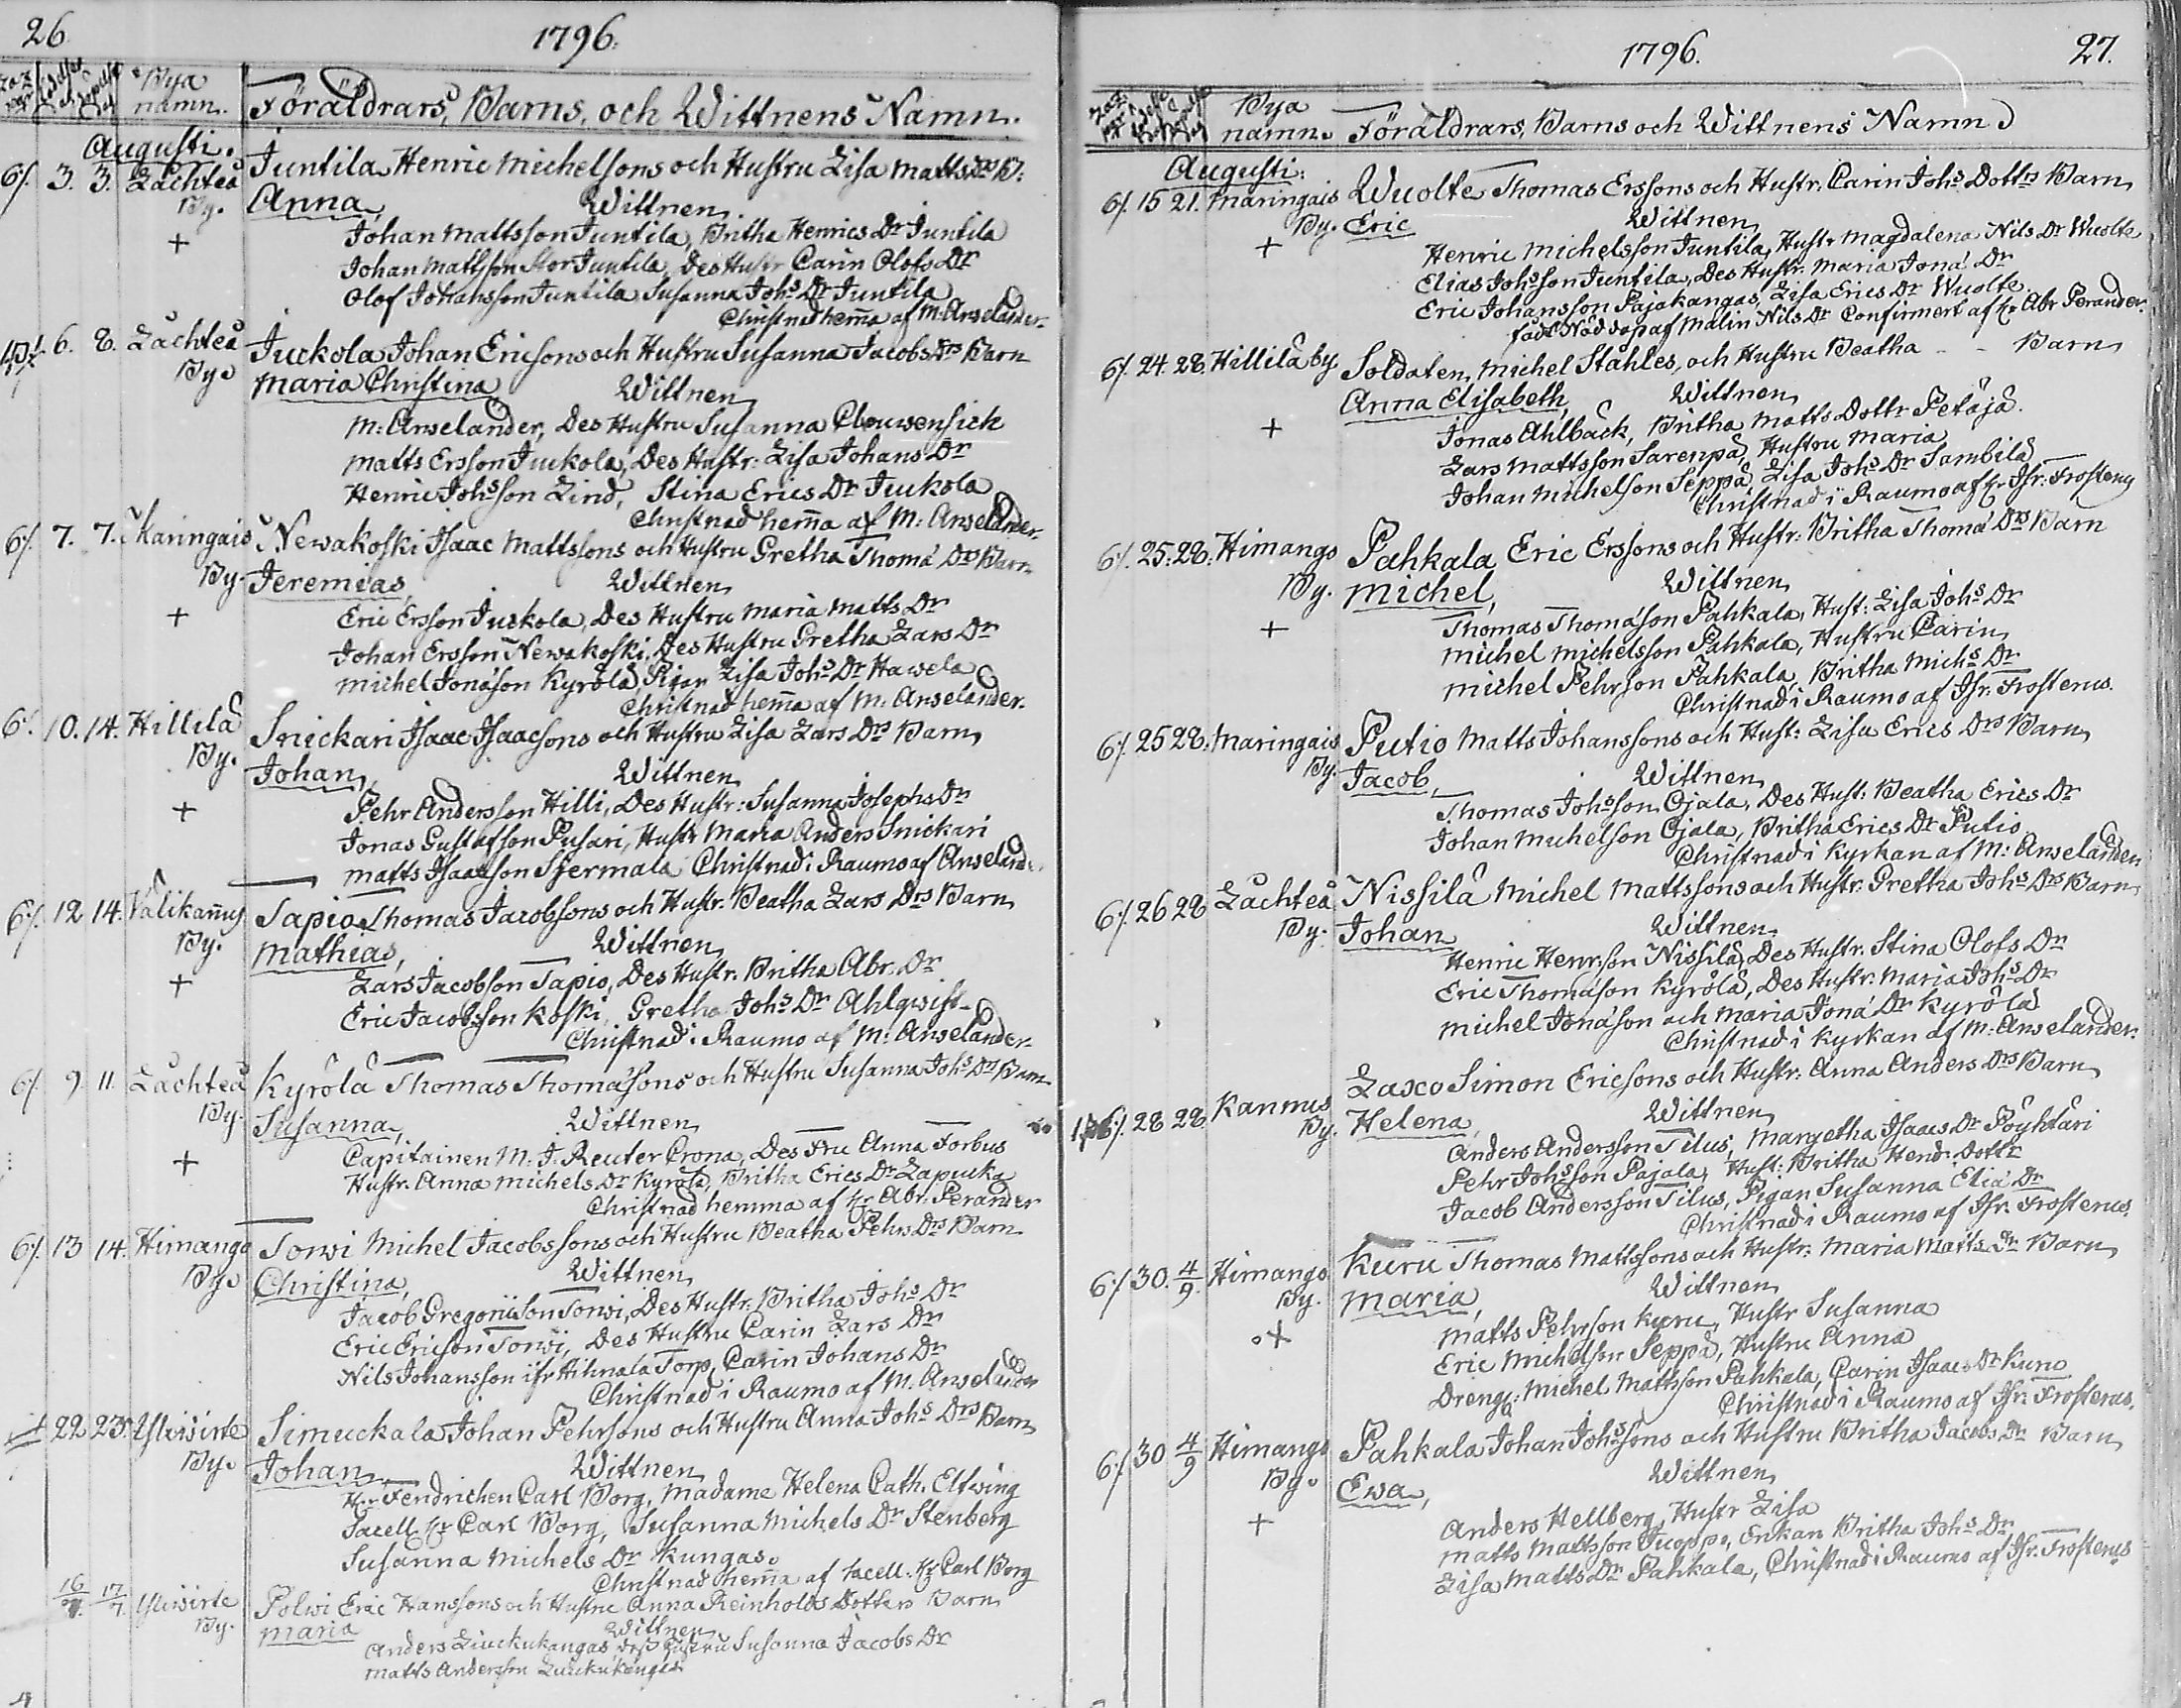 26.
1796.
Bya
namn.
Föräldrars, Barns, och Wittnens Namn.
Augusti.
6/. 3. 3. Lachteå Juntila Henric Michelsons och Hustru Lisa Matts Drs B:
By. Anna, Wittnen
+ Johan Mattsson Juntila, Britha Henrics Dr Juntila
Johan Mattsson Stor Juntila, Des Hustr Carin Olofs Dr
Olof Johansson Juntila, Susanna Johs Dr Juntila
Christnad hem̃a af M. Anselander.
6. 8. Lachteå Juckola Johan Ericsons och Hustru Susanna Jacobs Drs Barn
By. Maria Christina Wittnen
M: Anselander, Des Hustru Susanna Clouwensick
Matts Ersson Juckola, Des Hustr: Lisa Johans Dr
Henric Johsson Lind, Stina Erics Dr Juckola
Christnad hem̃a af M: Anselander.
6/. 7. 7. Maringais Newakoski Isaac Mattssons och Hustru Gretha Thomæ Drs Barn
By. Jeremias, Wittnen
+ Eric Ersson Juckola, Des Hustru Maria Matts Dr
Johan Ersson Newakoski, Des Hustru Gretha Lars Dr
Michel Jonæson Kyrölä, Pigan Lisa Johs Dr Hawela
Christnad hem̃a af M. Anselander.
6/. 10. 14. Hillilä Snickari Isaac Isaacsons och Hustru Lisa Lars Drs Barn
By. Johan, Wittnen
+ Pehr Andersson Hilli, Des Hustr: Susanna Josephs Dr
Jonas Gustafson Pusari, Hustr Maria Anders Snickari
Matts Isaacson Skermala Christnad i Raumo af Anselander.
6/. 12 14. Välikañus Tapio Thomas Jacobsons och Hustr. Beatha Lars Drs Barn
By. Mathias, Wittnen
+ Lars Jacobson Tapio, Des Hustr. Britha Abr. Dr
Eric Jacobsson Koski, Gretha Johs Dr Ahlqwist
Christnad i Raumo af M: Anselander.
6/. 9 11. Lachteå Kyrölä Thomas Thomæsons och Hustru Susanna Johs Drs Barn
By. Susanna, Wittnen
+ Capitainen M. J. Reuter Crona, Des Fru Anna Forbus
Hustr. Anna Michels Dr Kyrölä, Britha Erics Dr Lapucka
Christnad hemma af Hr Abr. Perander
6/. 13 14. Himango Torwi Michel Jacobssons och Hustru Beatha Pehrs Drs Barn
By. Christina, Wittnen
Jacob Gregorii Son Torwi, Des Hustr. Britha Johs Dr
Eric Ericson Torwi, Des Hustru Carin Lars Dr
Nils Johansson ifr Hihnala Torp, Carin Johans Dr
Christnad i Raumo af M. Anselander
22 23. Ylwiirte Simuckala Johan Pehrsons och Hustru Anna Johs Drs Barn
By. Johan Wittnen
Hr Fendrichen Carl Borg, Madame Helena Cath. Elfwing
Sacell. Hr Carl Borg, Susanna Michels Dr Stenberg
Susanna Michels Dr Kungas.
Christnad hem̃a af Sacell. Hr Carl Borg
16/7. 17/7. Ylwiirte Polwi Eric Hanssons och Hustru Anna Reinholds Dotters Barn
By. Maria Wittnen
Anders Liuckukangas, dess Hustru Susanna Jacobs Dr
Matts Andersson Liuckukangas
1796.
27.
Bya
namn. Föräldrars, Barns och Wittnens Namn
Augusti:
6/. 15 21. Maringais Wuolte Thomas Erssons och Hustr: Carin Johs Dottrs Barn
By. Eric Wittnen
+ Henric Michelsson Juntila, Hustr Magdalena Nils Dr Wuolte
Elias Johsson Juntila, Des Hustr. Maria Jonæ Dr
Eric Johansson Pajakangas, Lisa Erics Dr Wuolte.
fådt Nöddop af Malin Nils Dr Confirmert af Hr Abr Perander.
6/. 24. 28. Hillilä by Soldaten Michel Ståhles, och Hustru Beatha - - Barn
Anna Elisabeth, Wittnen
+ Jonas Ahlbäck, Britha Matts Dottr Petäjä.
Lars Mattsson Sarenpä, Hustru Maria
Johan Michelson Seppä, Lisa Johs Dr Sambila
Christnad i Raumo af Hr Isr: Frosterus
6/. 25. 28. Himango Pahkala Eric Erssons och Hustr: Britha Thomæ Drs Barn
By. Michel, Wittnen
+ Thomas Thomæson Pahkala, Hust: Lisa Johs Dr
Michel Michelsson Pahkala, Hustru Carin
Michel Pehrson Pahkala, Britha Michs Dr
Christnad i Raumo af Isr. Frosterus.
6/. 25 28. Maringais Putio Matts Johanssons och Hust: Lisa Erics Drs Barn
By. Jacob, Wittnen
Thomas Johsson Ojala, Des Hust: Beatha Erics Dr
Johan Michelson Ojala, Britha Erics Dr Putio
Christnad i Kyrkan af M: Anselander
6/. 26 28 Lachteå Nissilä Michel Mattssons och Hustr. Gretha Johs Drs Barn
By. Johan Wittnen
Henric Henr.son Nissilä, Des Hustr. Stina Olofs Dr
Eric Thomæson Kyrölä, Des Hustr: Maria Johs Dr
Michel Jonæson och Maria Jonæ Dr Kyrölä
Christnad i Kyrkan af M: Anselander.
6/. 28 28. Kannus Laxo Simon Ericsons och Hustr: Anna Anders Drs Barn
By. Helena, Wittnen
Anders Andersson Tilus, Margetha Isaacs Dr Pöyhtäri
Pehr Johsson Pajala, Hust: Britha Hendr. Dottr
Jacob Andersson Tilus, Pigan Susanna Eliæ Dr
Christnad i Raumo af Isr. Frosterus.
6/. 30. 4/9. Himango Kuru Thomas Mattssons och Hustr: Maria Matts Dr Barn
By. Maria, Wittnen
+ Matts Pehrson Kuru, Hustr Susanna
Eric Michelson Seppä, Hustru Anna
Dreng: Michel Mattsson Pahkala, Carin Isaacs Dr Kuru
Christnad i Raumo af Isr. Frosterus.
6/. 30 4/9 Himango Pahkala Johan Johssons och Hustru Britha Jacobs Dr Barn
By. Ewa, Wittnen
+ Anders Hellberg, Hustr Lisa
Matts Mattsson Juoppo, Enkan Britha Johs Dr
Lisa Matts Dr Pahkala, Christnad i Raumo af Isr. Frosterus